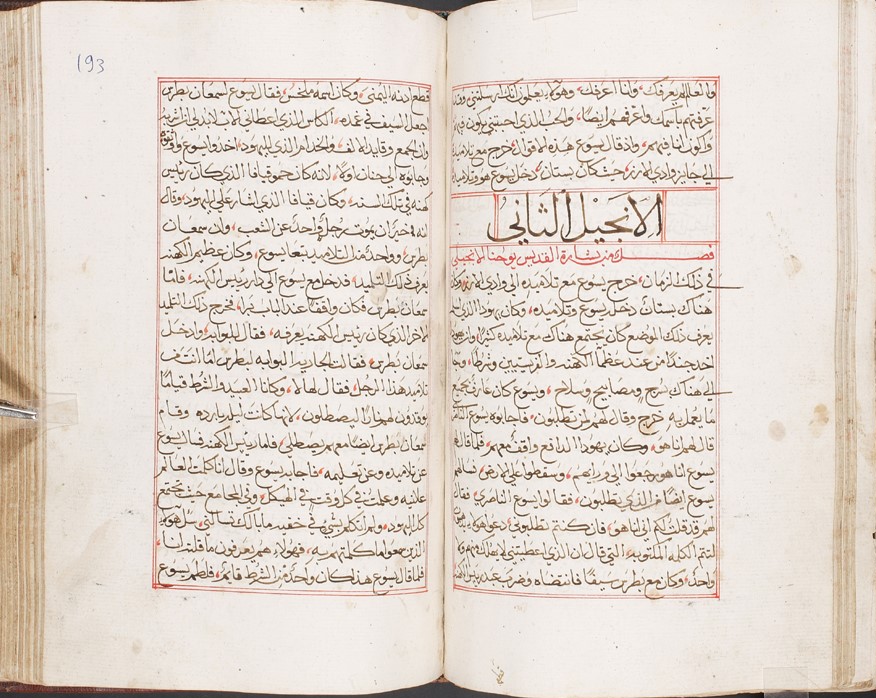 والعالم لم يعرفك، وانا اعرفك، وهولاء يعلمون انك ارسلتني وقد
عرفتهم باسمك واعرفهم ايضًا، والحب الذي احببتني يكون فيهم
واكون انا فيهم، واذ قال يسوع هذه الاقوال، خرج مع تلاميذه
الي جايز وادي الارز، حيث كان بستان، دخل يسوع هو وتلاميذه
الانجيل الثاني
فصل من بشارة القديس يوحنا الانجيلي
في ذلك الزمان، خرج يسوع مع تلاميذه الي وادي الارز، وكان
هناك بستان دخل يسوع وتلاميذه، وكان يهودا الذي
يعرف ذلك الموضع كان يجتمع هناك مع تلاميذه كثيرًا،
اخد جندًا من عند عظما الكهنه والفريسيين وشرطا، وجا
الي هناك بسرج ومصابيح وسلاح، ويسوع كان عارف بجميع
ما يعمل به خرج وقال لهم لمن تطلبون، فاجابوه يسوع الناصري
قال لهم انا هو، وكان يهودا الدافع واقف معهم، فلما قال لهم
يسوع انا هو رجعوا الي وراهم، وسقطوا علي الارض، فسالهم
يسوع ايضًا من الذي تطلبون، فقالوا يسوع الناصري، فقال
لهم قد قلت لكم اني انا هو، فان كنتم تطلبوني، دعوا هولاء
لتتم الكلمه المكتوبه التي قال ان الذي اعطيتني لا يهلك منهم ولا
واحدٌ، وكان مع بطرس سيفًا فانتضاه وضرب عبد رييس الكهنه
193
قطع ادنه اليمني، وكان اسمه ملخس، فقال يسوع لسمعان بطرس
جعل السيف في غمده، الكاس الذي اعطاني الاب لابد لي ان اشربه
وان الجمع وقايد الالف، والخدام الذي لليهود، اخذوا يسوع واوثقوه
وجاوا به الي حنان اولاً، لانه كان حمو قيافا الذي كان رييس
كهنه في تلك السنه، وكان قيافا الذي اشار علي اليهود وقال
انه خير ان يموت رجلٌ واحدٌ عن الشعب، وان سمعان
بطرس، وواحد من التلاميد تبعا يسوع، وكان عظيم الكهنه
يعرف ذلك التلميد، فدخل مع يسوع الي دار رييس الكهنه، فاما
سمعان بطرس، فكان واقفًا عند الباب برا، فخرج ذلك التلميد
الاخر الذي كان رييس الكهنه يعرفه، فقال للبوابه وادخل
سمعان بطرس، فقالت الجاريه البوابه لبطرس اما انت من
تلاميد هذا الرجل، فقال لها لا، وكانا العبيد والشرط قيامًا
يوقدون لهم نارًا ليصطلون، لانها كانت ليله بارده، وقام
سمعان بطرس ايضًا معهم يصطلي، فاما رييس الكهنه فسال يسوع
عن تلاميده وعن تعليمه، فاجابه يسوع وقال انا كلمت العالم
علانيه وعلمت في كل وقت في الهيكل، وفي المجامع حيث تجتمع
كل اليهود، ولم اتكلم بشي في خفيه، ما بالك تسالني، سل هولاء
الذين سمعوا ما كلمتهم به، فهولاء هم يعرفون ما قلته انا،
فلما قال يسوع هذا، كان واحدٌ من الشرط قايم، فلطم يسوع